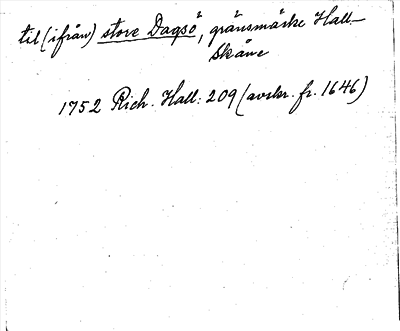 till (ifrån) store Dagsö, gränsmärke Hall.–
Skåne
1752 Rich. Hall: 209 (avskr. fr. 1646)